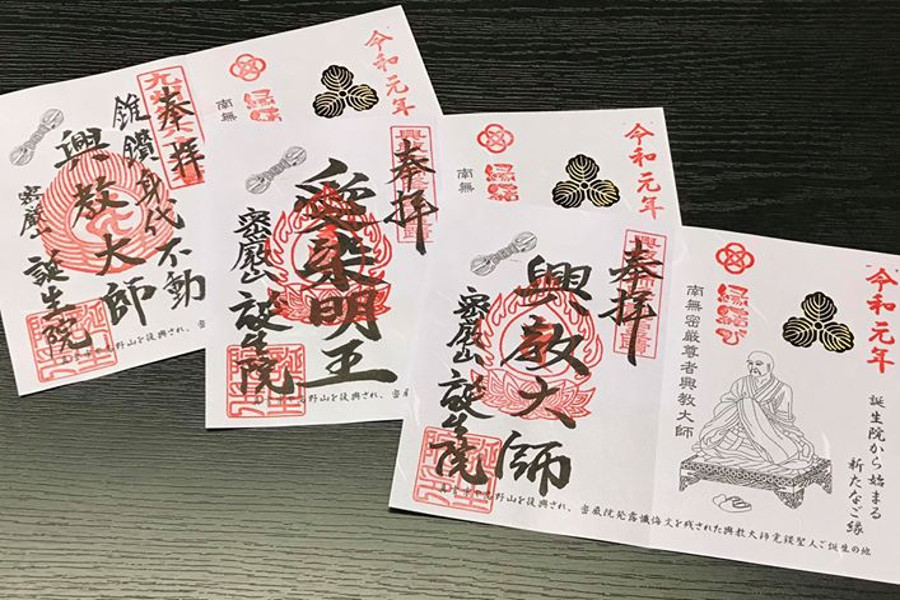 令和元年
南無
奉拝
錐鑽身代不動
興教大師
密厳山
誕生院
野山を復興され、
令和元年
南無
奉拝
愛染明王
密厳山
誕生院
野山を復興され、
令和元年
誕生院から始まる
新たなご縁
縁結び
南無密厳尊者興教大師
奉拝
興教大師
密厳山
誕生院
野山を復興され、密厳院発露懺悔文を残された興教大師覚鑁聖人ご誕生の地